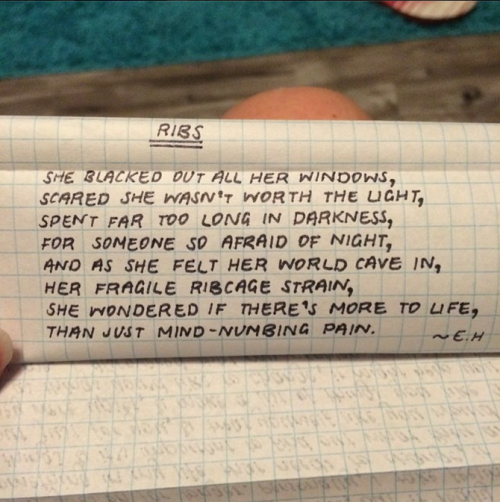 RIBS
SHE BLACKED OUT ALL HER WINDOWS,
SCARED SHE WASN'T WORTH THE LIGHT,
SPENT FAR TOO LONG IN DARKNESS,
FOR SOMEONE SO AFRAID OF NIGHT,
AND AS SHE FELT HER WORLD CAVE IN,
HER FRAGILE RIBCAGE STRAIN,
SHE WONDERED IF THERE'S MORE TO LIFE,
THAN JUST MIND-NUMBING PAIN.
~E.H